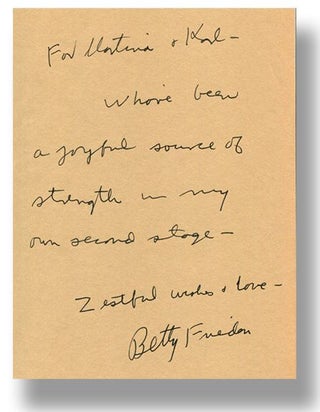 For Martina & Karl –
Who've been
a joyful source of
strength in my
own second stage –
Zestful wishes & love –
Betty Friedan